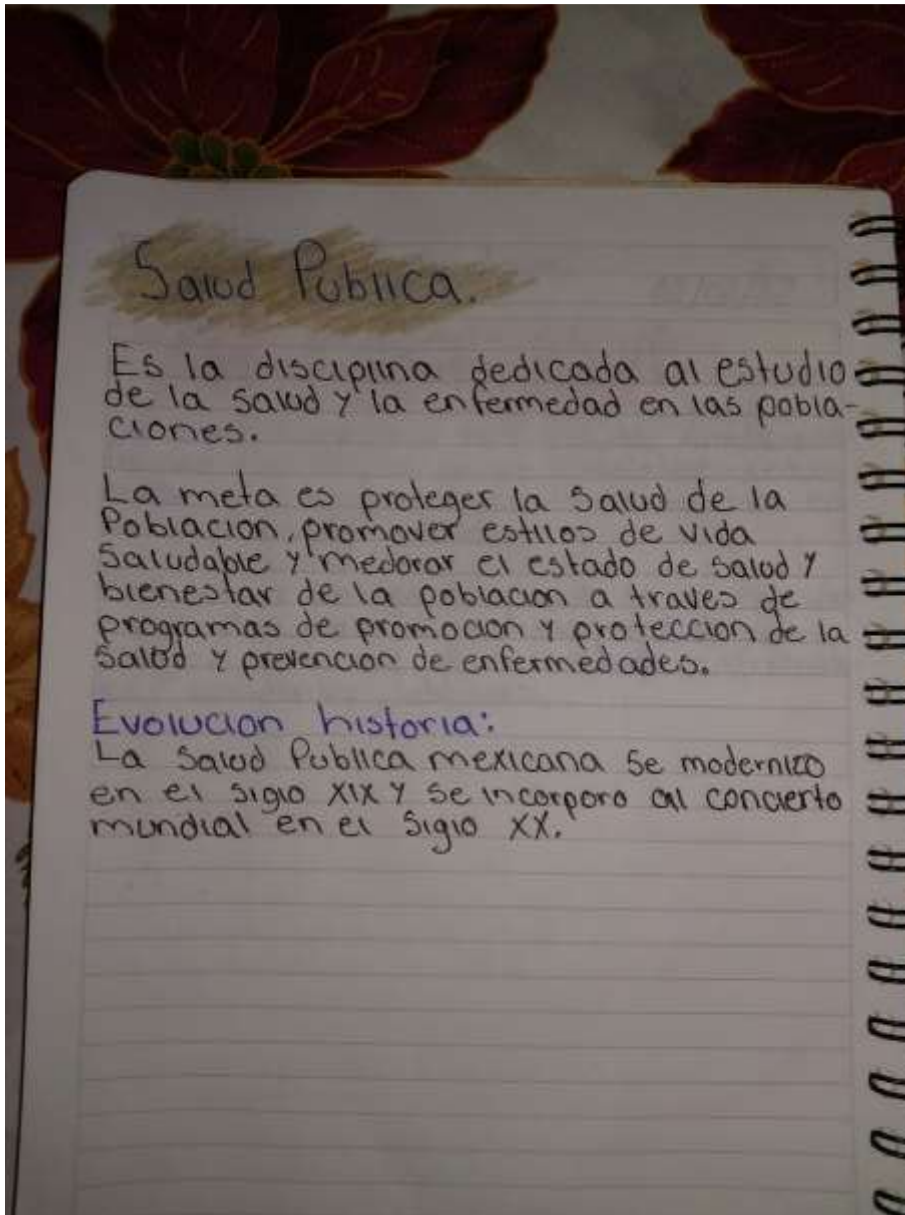 Salud Publica.
Es la disciplina dedicada al estudio
de la salud y la enfermedad en las pobla-
ciones.
La meta es proteger la salud de la
Poblacion, promover estilos de vida
Saludable y medorar el estado de salud y
bienestar de la poblacion a traves de
programas de promocion y proteccion de la
salud y prevencion de enfermedades.
Evolucion historia:
La Salud Publica mexicana se modernizo
en el siglo XIX y se incorporo al concierto
mundial en el siglo XX.